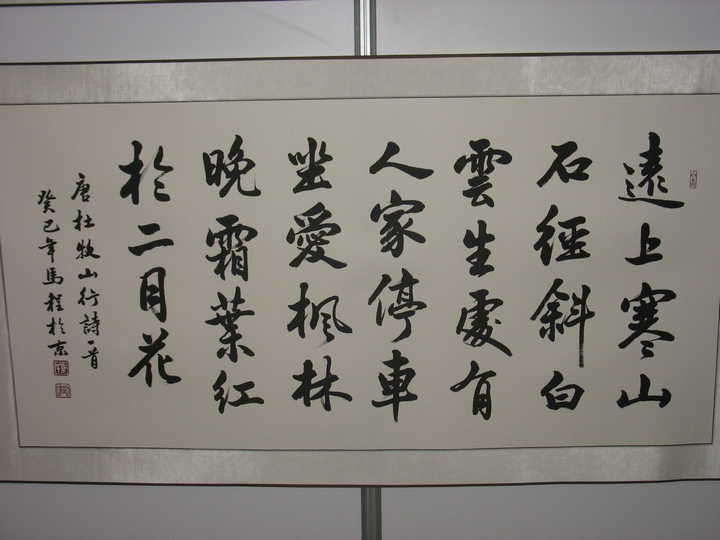 遠上寒山
石徑斜白
雲生處有
人家停車
坐愛楓林
晚霜葉紅
於二月花
唐杜牧山行詩一首
癸巳年馬程於京